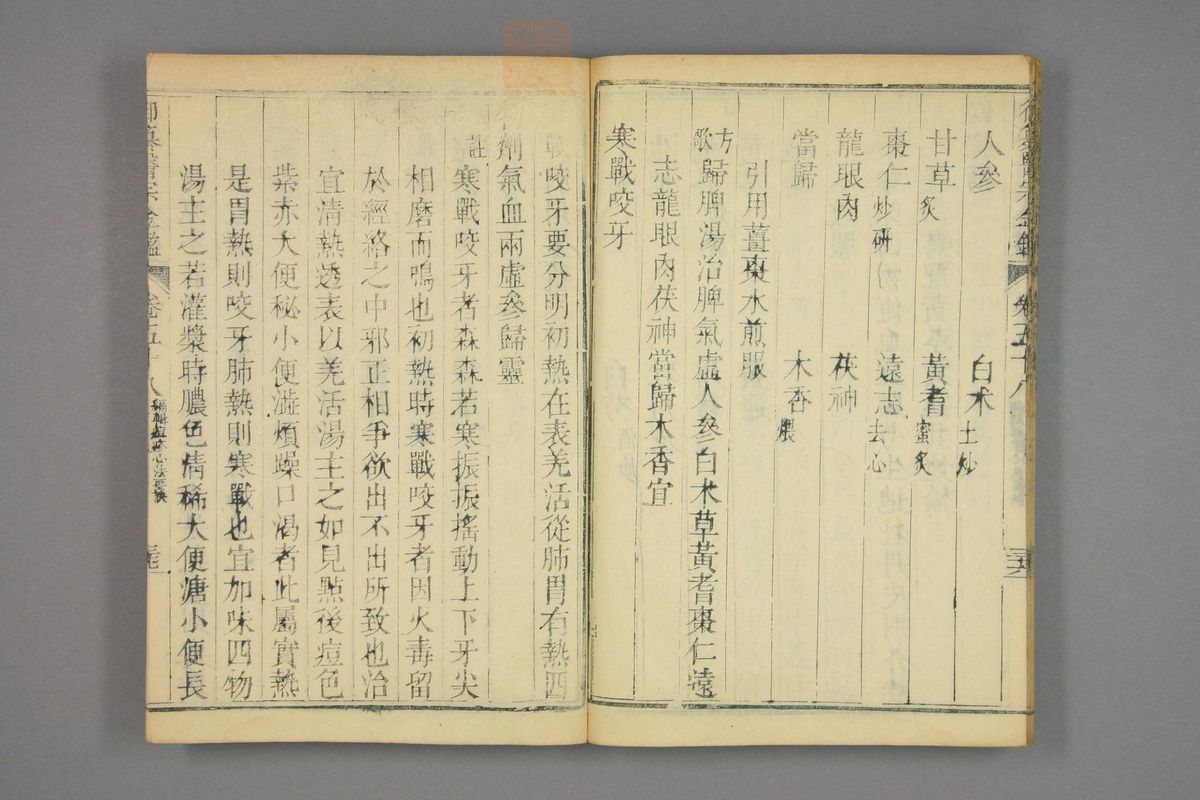 人參　白朮土炒
甘草炙　黃耆蜜炙
棗仁炒研　遠志去心
龍眼肉　茯神
當歸　木香煨
引用薑棗水煎服
方歌歸脾湯治脾氣虛人參白朮草黃耆棗仁遠
志龍眼肉茯神當歸木香宜
寒戰咬牙
戰咬牙要分明初熱在表羌活從肺胃有熱四
物劑氣血兩虛參歸靈
註寒戰咬牙者森森若寒振振搖動上下牙尖
相磨而鳴也初熱時寒戰咬牙者因火毒留
於經絡之中邪正相爭欲出不出所致也治
宜清熱透表以羌活湯主之如見點後痘色
紫赤大便秘小便澁煩躁口渴者此屬實熱
是胃熱則咬牙肺熱則寒戰也宜加味四物
湯主之若灌漿時膿色清稀大便溏小便長
御纂醫宗金鑑　卷五十八　編輯痘疹心法要訣